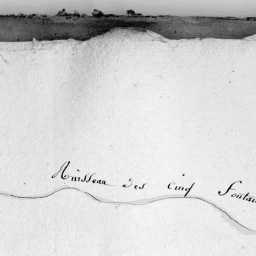 Ruisseau des cinq Fontai